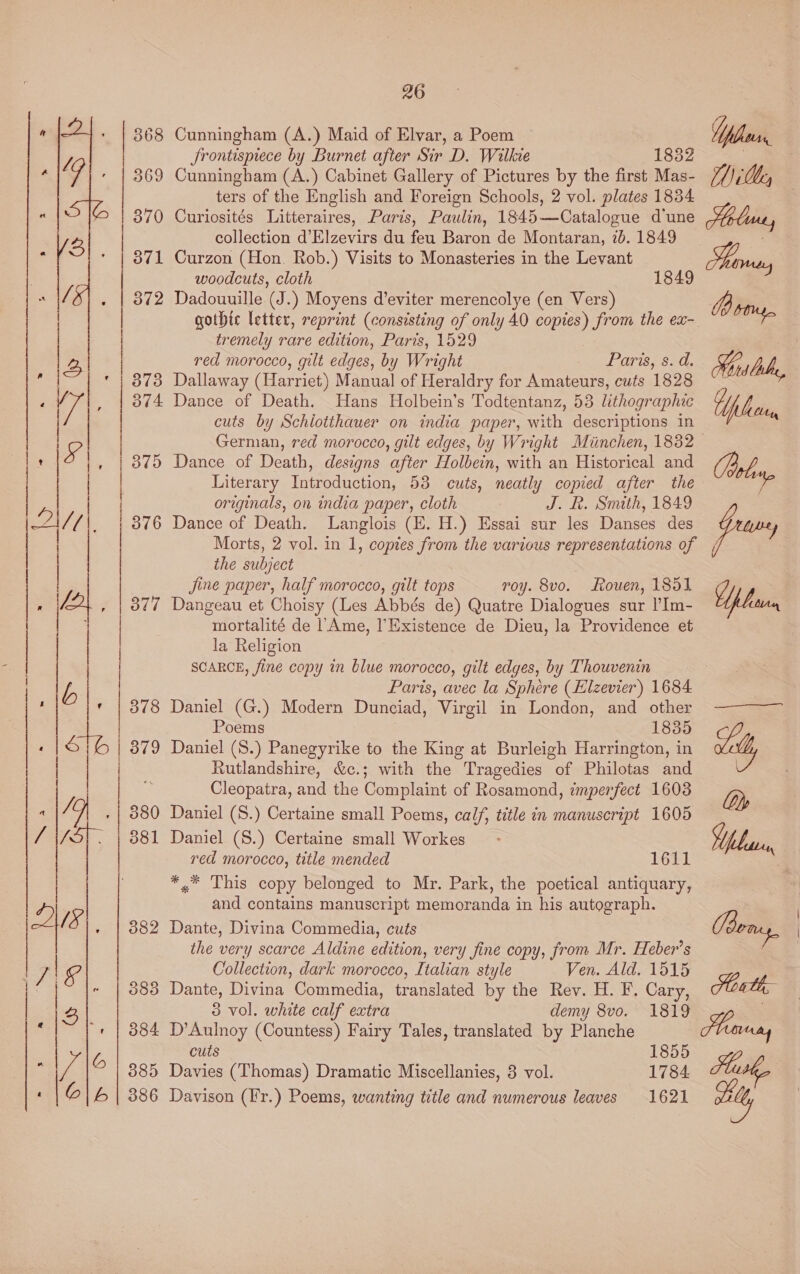 26
" 2 . 368 Cunningham (A.) Maid of Elvar, a Poem Upham
frontispiece by Burnet after Sir D. Wilkie 1832
" 19 . 369 Cunningham (A.) Cabinet Gallery of Pictures by the first Mas- Willis
ters of the English and Foreign Schools, 2 vol. plates 1834
" 5 6 370 Curiosités Litteraires, Paris, Paulin, 1845—Catalogue d'une
collection d'Elzevirs du feu Baron de Montaran, ib. 1849
" 13 . 371 Curzon (Hon. Rob.) Visits to Monasteries in the Levant
woodcuts, cloth 1849
" 18 . 372 Dadouuille (J.) Moyens d'eviter merencolye (en Vers) Boone
gothic letter, reprint (consisting of only 40 copies) from the ex-
tremely rare edition, Paris, 1529
red morocco, gilt edges, by Wright Paris, s. d.
" 3 . 373 Dallaway (Harriet) Manual of Heraldry for Amateurs, cuts 1828
" 17 . 374 Dance of Death. Hans Holbein's Todtentanz, 53 lithographic Upham
cuts by Schlotthauer on india paper, with descriptions in
German, red morocco, gilt edges, by Wright München, 1832
" 8 . 375 Dance of Death, designs after Holbein, with an Historical and
Literary Introduction, 53 cuts, neatly copied after the
originals, on india paper, cloth J. R. Smith, 1849
2 11 . 376 Dance of Death. Langlois (E. H.) Essai sur les Danses des Graves
Morts, 2 vol. in 1, copies from the various representations of
the subject
fine paper, half morocco, gilt tops roy. 8vo. Rouen, 1851
" 12 . 377 Dangeau et Choisy (Les Abbés de) Quatre Dialogues sur l'Im- Upham
mortalité de l'Ame, l'Existence de Dieu, la Providence et
la Religion
SCARCE, fine copy in blue morocco, gilt edges, by Thouvenin
Paris, avec la Sphère (Elzevier) 1684
" 6 . 378 Daniel (G.) Modern Dunciad, Virgil in London, and other
Poems 1835
" 5 6 379 Daniel (S.) Panegyrike to the King at Burleigh Harrington, in Lilly
Rutlandshire, &c.; with the Tragedies of Philotas and
Cleopatra, and the Complaint of Rosamond, imperfect 1603
" 19 . 380 Daniel (S.) Certaine small Poems, calf, title in manuscript 1605
1 15 . 381 Daniel (S.) Certaine small Workes Upham
red morocco, title mended 1611
*** This copy belonged to Mr. Park, the poetical antiquary,
and contains manuscript memoranda in his autograph.
2 18 . 382 Dante, Divina Commedia, cuts Boone
the very scarce Aldine edition, very fine copy, from Mr. Heber's
Collection, dark morocco, Italian style Ven. Ald. 1515
1 8 . 383 Dante, Divina Commedia, translated by the Rev. H. F. Cary, Heath
3 vol. white calf extra demy 8vo. 1819
" 3 . 384 D'Aulnoy (Countess) Fairy Tales, translated by Planche
cuts 1855
" 7 6 385 Davies (Thomas) Dramatic Miscellanies, 3 vol. 1784
" 6 6 386 Davison (Fr.) Poems, wanting title and numerous leaves 1621 Lilly